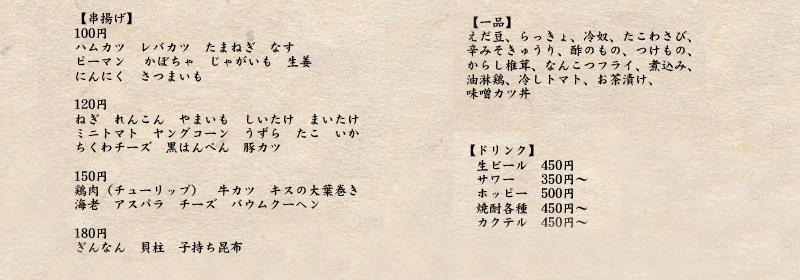 【串揚げ】
100円
ハムカツ　レバカツ　たまねぎ　なす
ピーマン　かぼちゃ　じゃがいも　生姜
にんにく　さつまいも
120円
ねぎ　れんこん　やまいも　しいたけ　まいたけ
ミニトマト　ヤングコーン　うずら　たこ　いか
ちくわチーズ　黒はんぺん　豚カツ
150円
鶏肉（チューリップ）　牛カツ　キスの大葉巻き
海老　アスパラ　チーズ　バウムクーヘン
180円
ぎんなん　貝柱　子持ち昆布
【一品】
えだ豆、らっきょ、冷奴、たこわさび、
辛みそきゅうり、酢のもの、つけもの、
からし椎茸、なんこつフライ、煮込み、
油淋鶏、冷しトマト、お茶漬け、
味噌カツ丼
【ドリンク】
生ビール　450円
サワー　350円～
ホッピー　500円
焼酎各種　450円～
カクテル　450円～